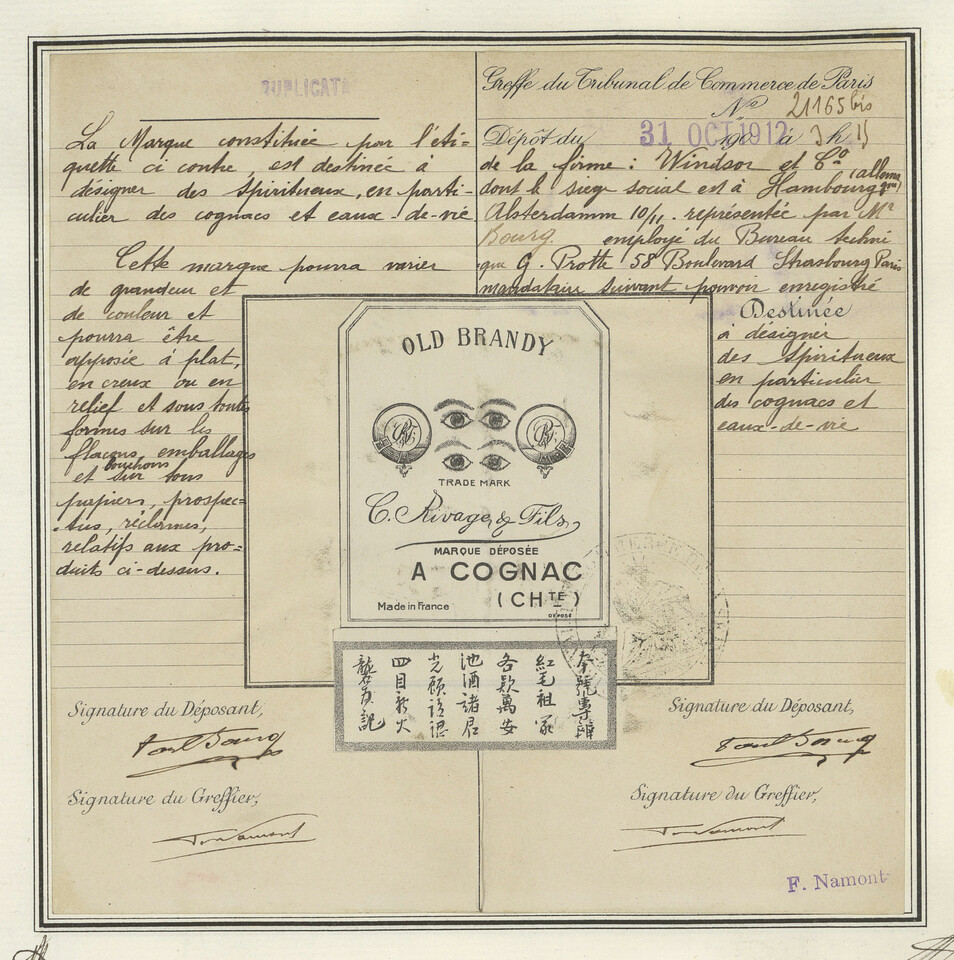 DUPLICATA
La Marque constituée par l'éti-
quette ci contre, est destinée à
désigner des Spiritueux, en parti-
culier des cognacs et eaux-de-vie
Cette marque pourra varier
de grandeur et
de couleur et
pourra être
apposée à plat,
en creux ou en
relief et sous toutes
formes sur les
flacons, emballages
bouchons
et sur tous
papiers, prospec-
tus, réclames,
relatifs aux pro-
duits ci-dessus.
Signature du Déposant,
Signature du Greffier,
Greffe du Tribunal de Commerce de Paris
No 21165 bis
Dépôt du 31 OCT 1912 à 3 h 15
de la firme : Windsor et Co
dont le siège social est à Hambourg
Alsterdamm 10/11. représentée par Mr
Bourg. employé du Bureau techni
que G. Protte 58 Boulevard Strasbourg Paris
mandataire suivant pouvoir enregistré
Destinée
à désigner
des Spiritueux
en particulier
des cognacs et
eaux-de-vie
OLD BRANDY
TRADE MARK
C. Rivage & Fils
MARQUE DÉPOSÉE
A COGNAC
(CHTE)
Made in France
DÉPOSÉ
本號專辦
紅毛祖家
各欵萬安
池酒諸君
光顧請認
四目爲火
記
Signature du Déposant,
Signature du Greffier,
F. Namont